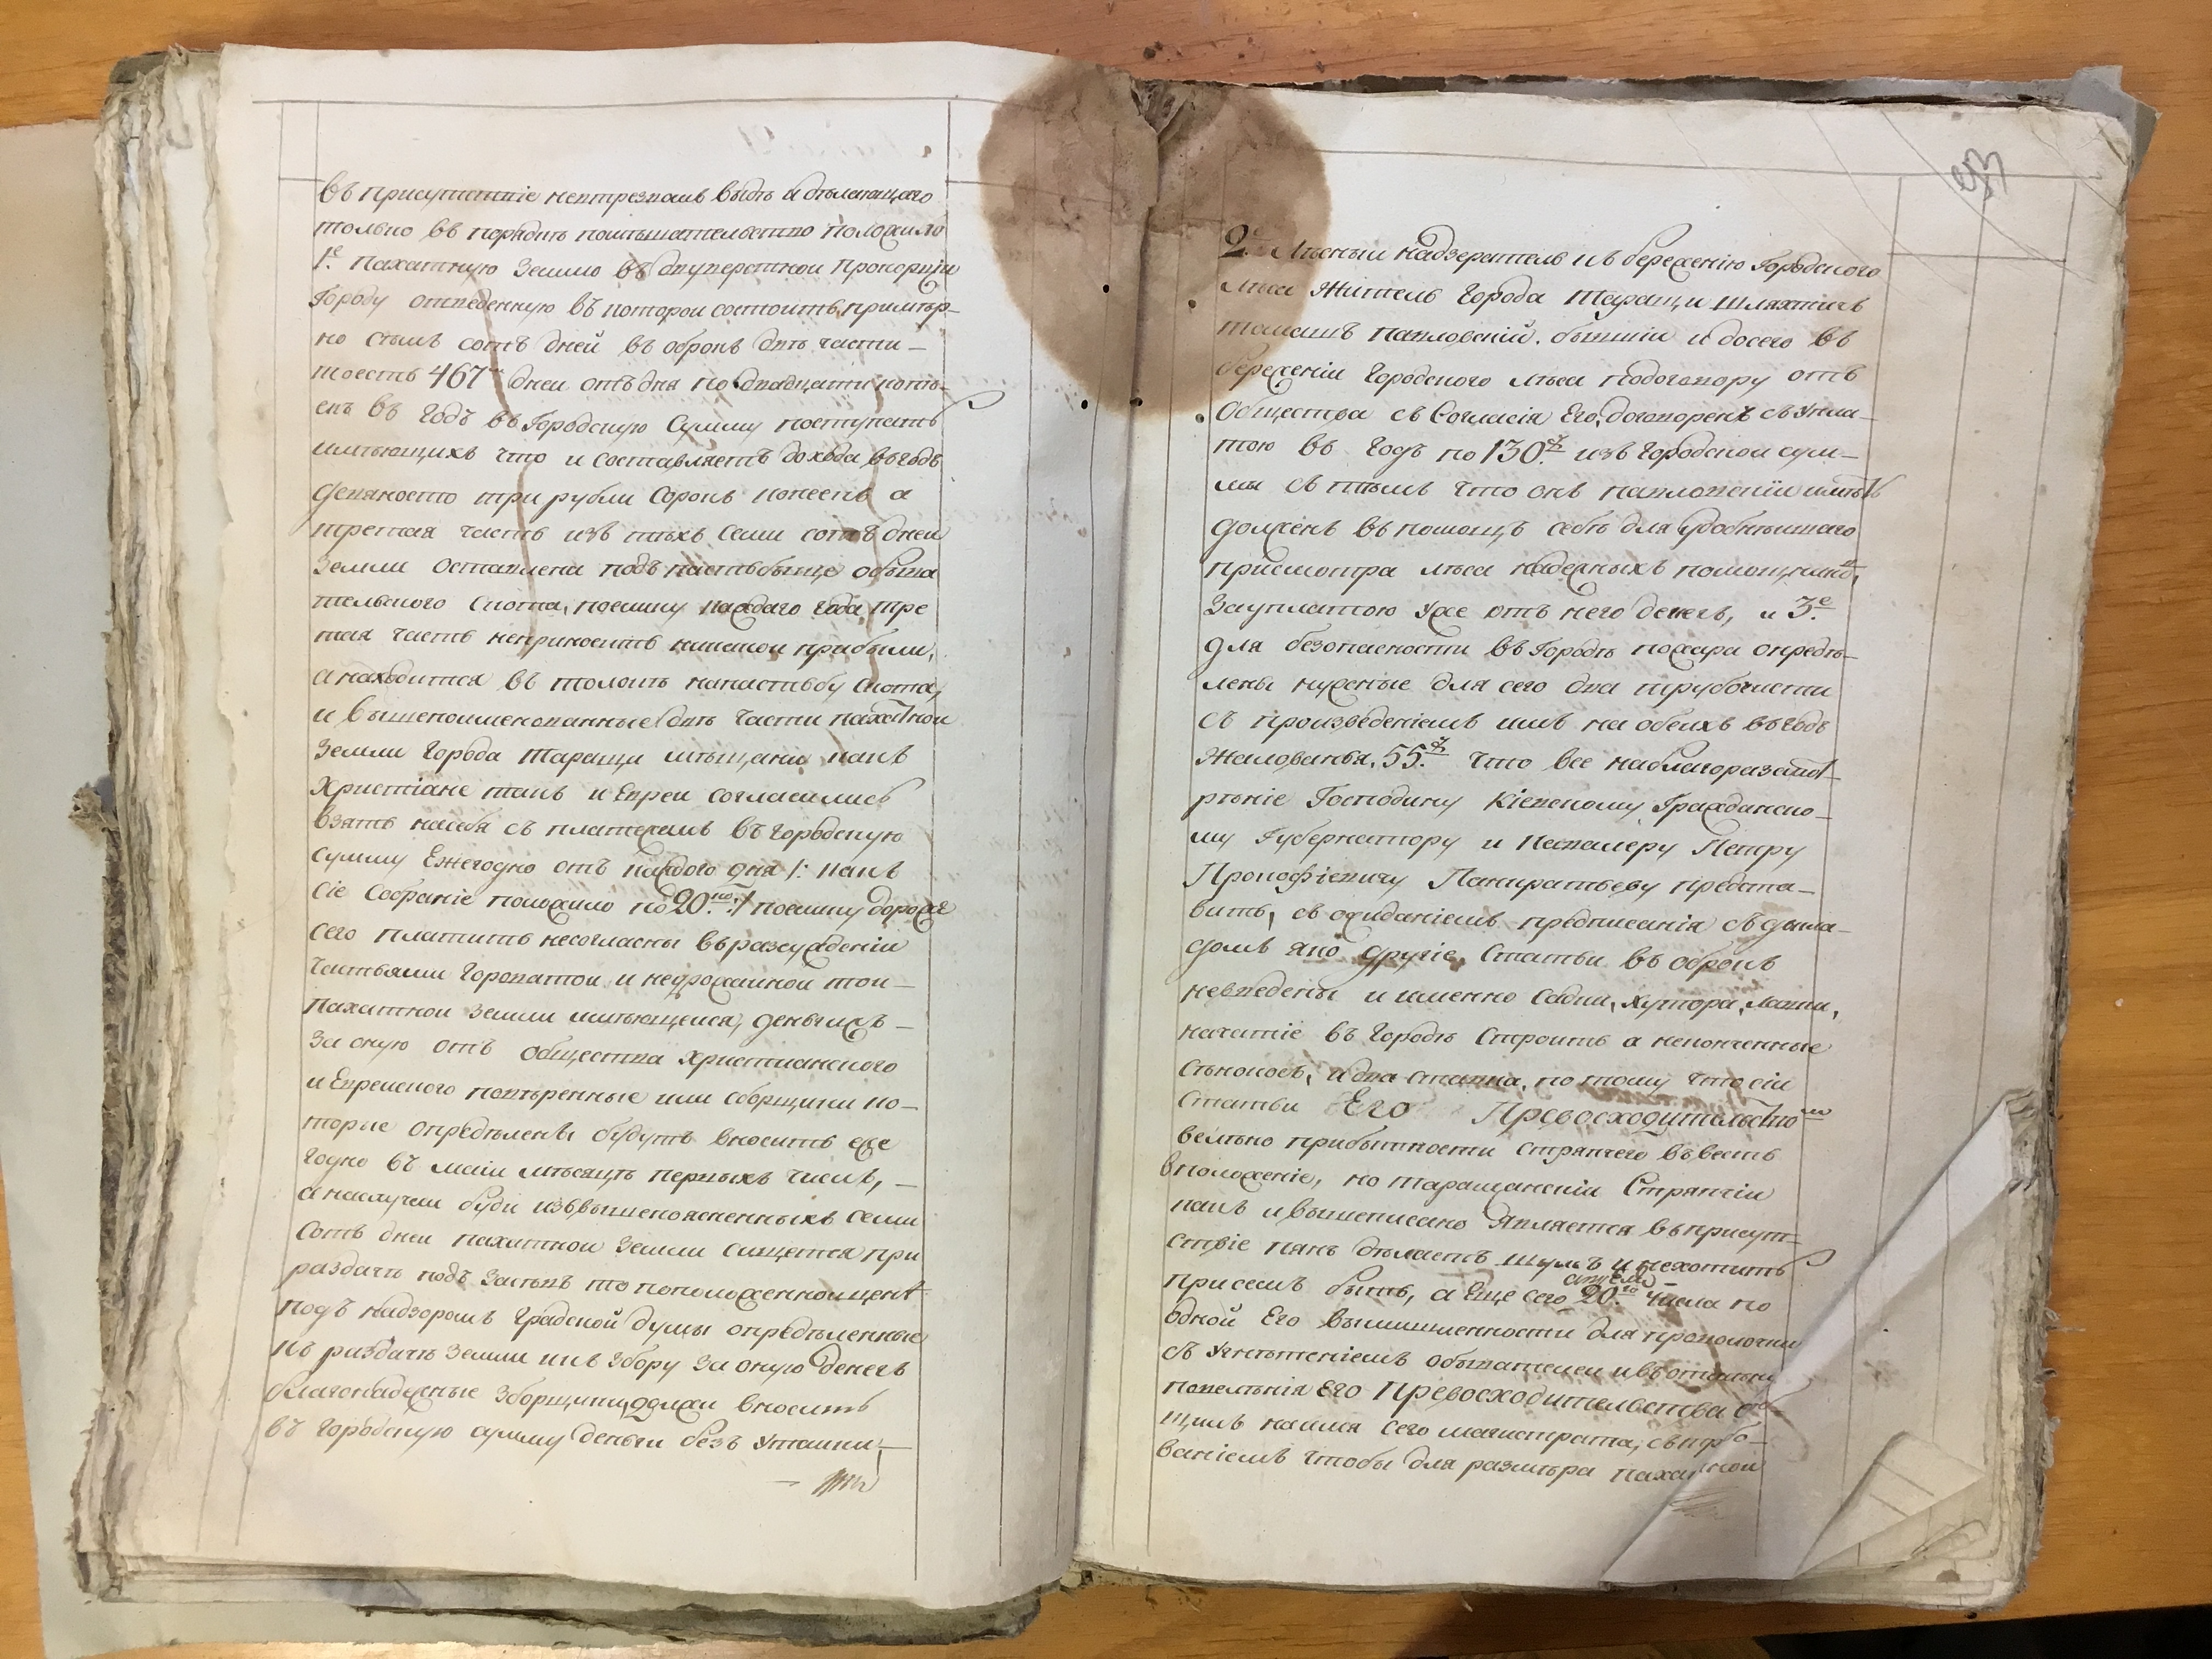 въ присутствіе нетрезвамъ быть и дѣлающаго
только въ порядкѣ помѣшательство положило
1е. Пахатную Землю въ двуверстной Пропорціи
Городу отведенную въ которой состоитъ примѣр-
но семь сотъ дней въ оброкъ двѣ части –
тоесть 467 дней отъ дня по двадцати копѣ-
екъ въ годъ въ Городскую Сумму поступать
имѣющихъ что и составляетъ дохода въ годъ
девяносто три рубли Сорокъ копѣекъ а
третая часть изъ тѣхъ семи сотъ дней
Земли оставлена подъ пастьбыще обыва
тельского Скота, поелику каждаго года тре
тая часть неприноситъ никакой прибыли,
а находится въ толокѣ напастьбу скота,
и вышепоименованные двѣ части пахатной
Земли Города Таращи мѣщане какъ
Христіане такъ и Евреи согласились
взять насебя съ платежемъ въ городскую
сумму Ежегодно отъ каждого дня /: какъ
сіе Собраніе положило по 20. ко :/ поелику дороже
сего платить несогласны въ разсужденіи
частьями Гороватой и недрожайной той –
пахатной Земли имѣющейся, деньги жъ –
За оную отъ Общества Христианского
и Еврейского повѣренные или сборщики ко-
торые опредѣлены будутъ вносить еже
годно въ маіи мѣсяцѣ первыхъ чиселъ, –
а наслучай буди изъ вышепоясненныхъ семи
сотъ дней пахатной Земли сыщется при
раздачѣ подъ Засѣвъ то по положенной ценѣ
подъ надзоромъ Градской думы опредѣленные
къ раздачѣ Земли и къ збору за оную денегъ
благонадежные Зборщики должни вносить
въ Городскую сумму деньги безъ Утайки,
93
2е Лѣсный надзератель къ береженію Городского
лѣса Житель города Таращи Шляхтичъ
томашъ павловскій. бывшій и досего въ
береженіи Городского лѣса подоговору отъ
Общества съ Согласія Его, договоренъ съ Упла-
тою въ годъ по 130. р. изъ Городской сум-
мы съ тѣмъ что онъ
долженъ въ помощь себѣ для удобнѣйшаго
присмотра лѣса надежныхъ помощниковъ,
Зауплатою уже отъ него денегъ, и 3е.
для безопасности въ Городѣ пожара опредѣ-
лены нужные для сего два трубочисти
съ произведеніемъ имъ на обеихъ въ годъ
Жалованья. 55. р. что все на благоразсмот-
рѣніе Господину Кіевскому Гражданско-
му Губернатору и Кавалеру Петру
Прокофіевичу Панкратьеву предста-
вить, съ ожиданіемъ предписанія съ докла-
домъ яко другіе, Статьи въ оброкъ
невведены и именно Садки, хутора, лавки,
начатіе въ городѣ Строить а неконченные
сѣнокосъ, и два ставка, по тому что сіи
статьи Его Превосходительством
велѣно прибытности стряпчего въвесть
вположеніе, но таращанскіи Стряпчіи
какъ и вышеписано является въ присут-
ствіе пянъ дѣлаетъ шумъ и нехотитъ
при семъ быть, а еще сего апреля 20. го числа по
одной Его вымишленности для проволочки
съ Угнѣтеніемъ обывателей и въ отмѣну
повелѣнія Его Превосходительства
наимя сего магистрата,
ваніемъ чтобы для размѣра пахатной